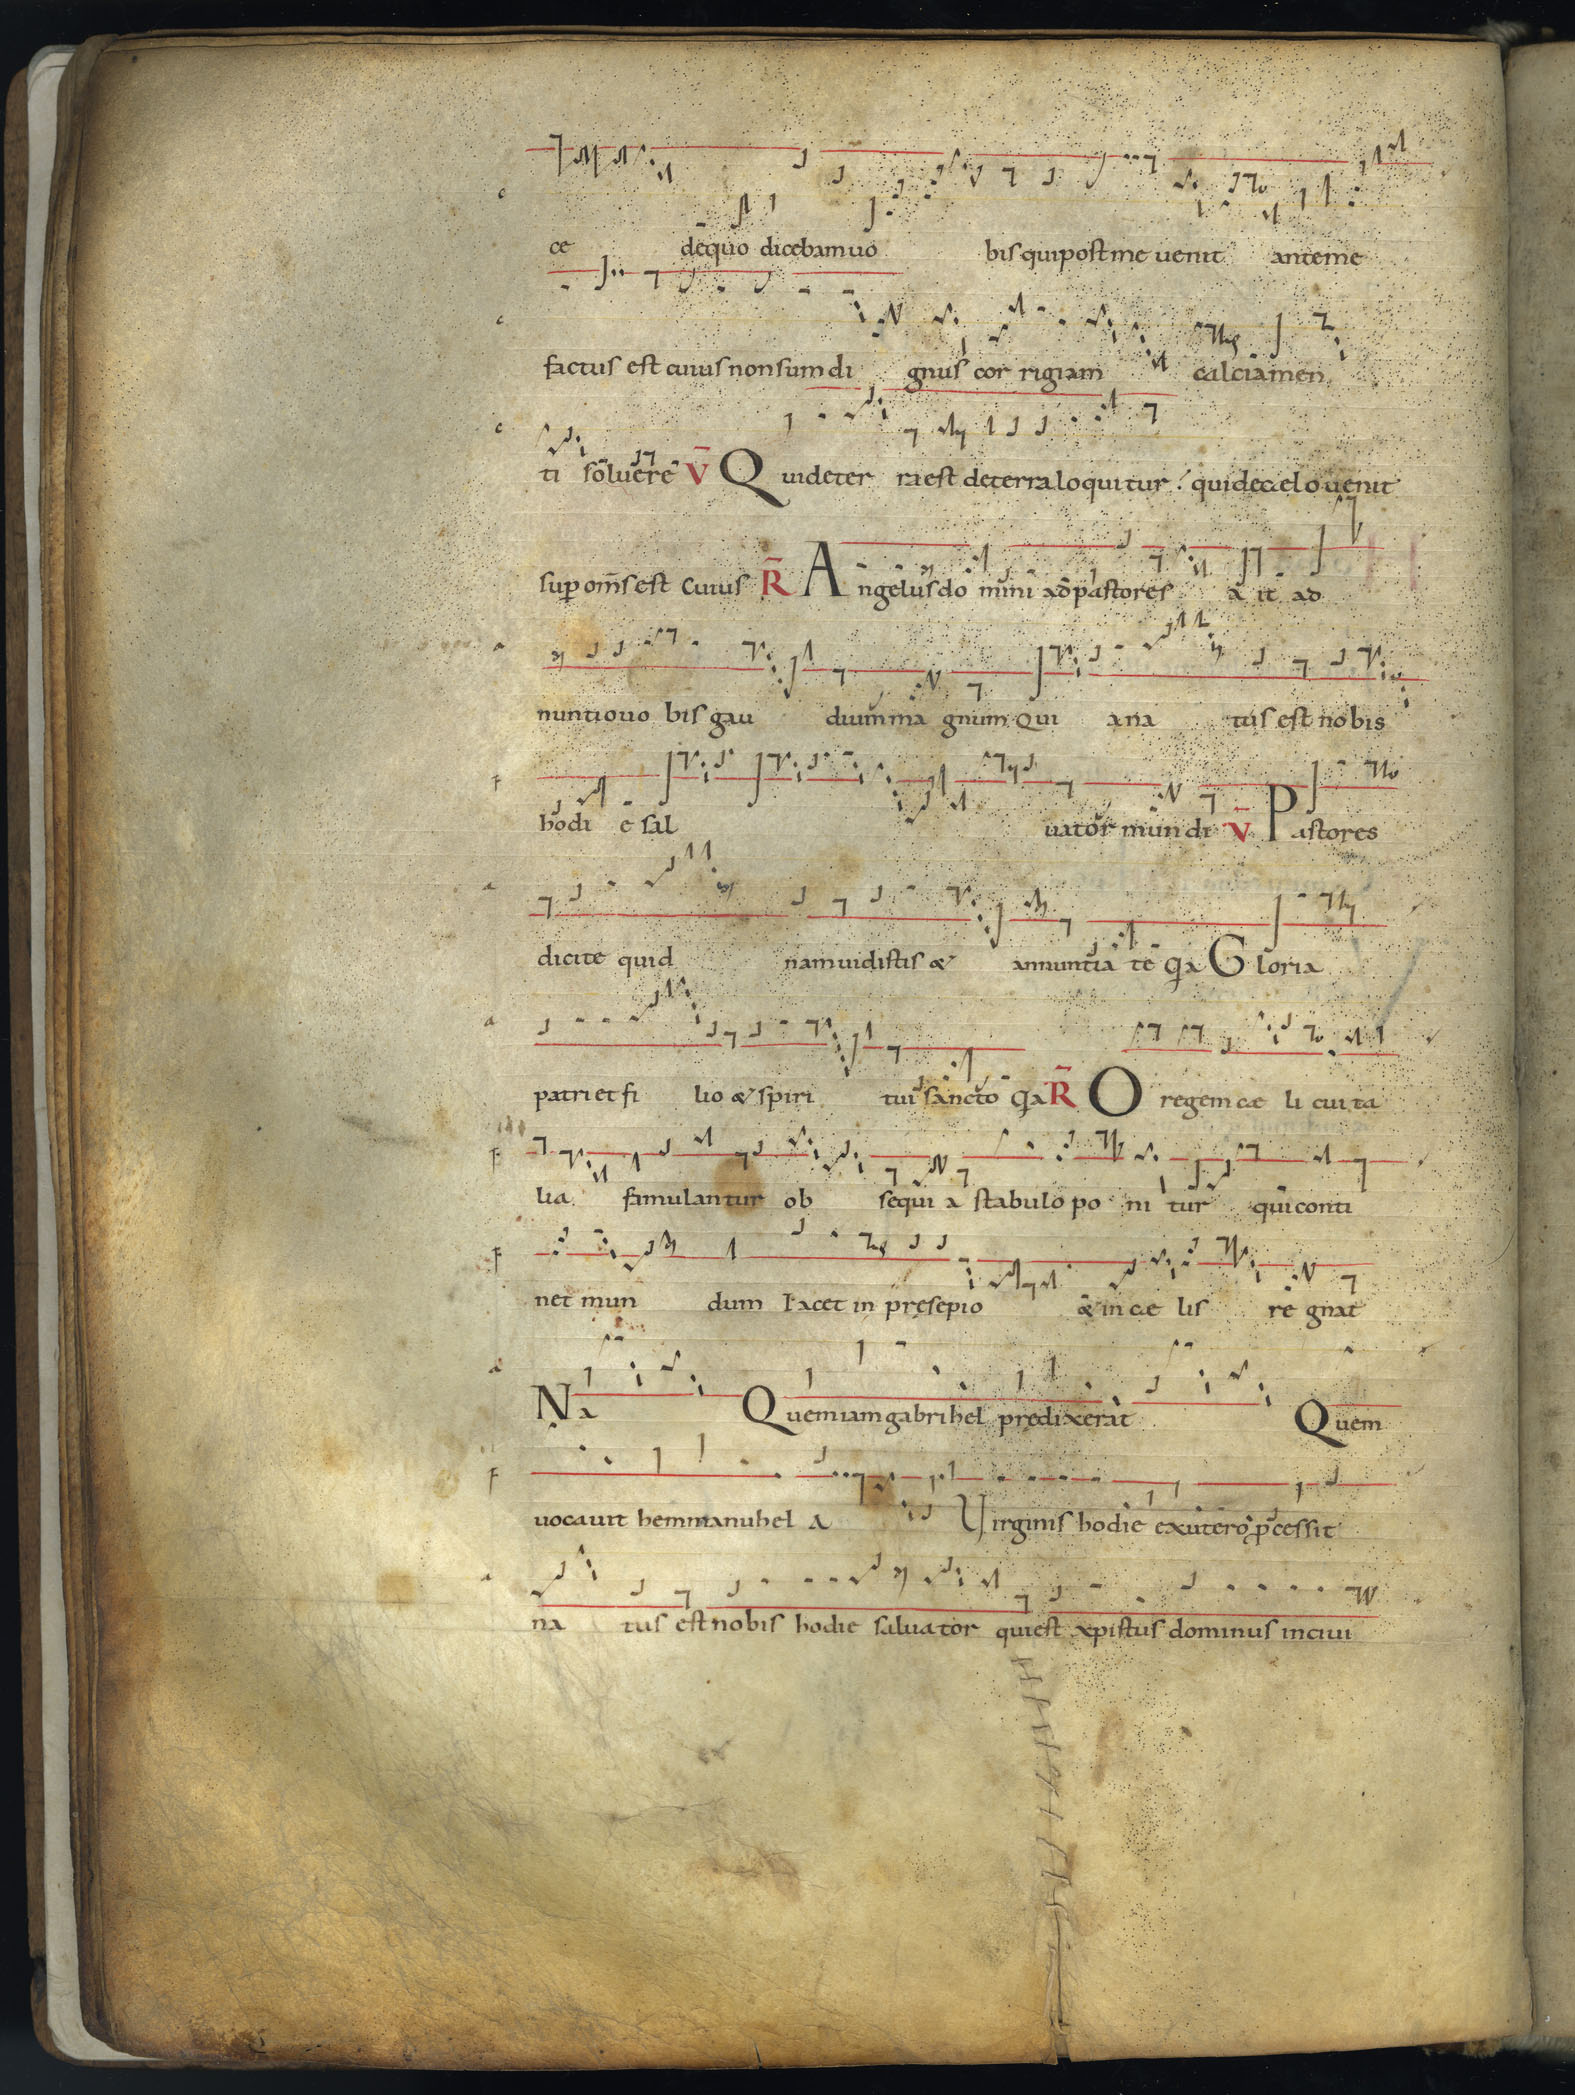 ce dequo dicebam uo bis qui post me uenit ante me
factus est cuius non sum di gnus cor rigiam calciamen
ti soluere V̄ Quideter ra est deterra loquitur quidecaelo uenit
sup om̄s est Cuius R̄ Angelus do mini ad pastores a it ad
nuntio uo bis gau dium ma gnum Qui ana tus est nobis
hodi e sal uator mun di V̄ Pastores
dicite quid nam uidistis & annuntia te q̄a Gloria
patri et fi lio & spiri tui sancto q̄a R̄ O regem cae li cui ta
lia famulantur ob sequi a stabulo po ni tur qui conti
net mun dum Iacet in pręsepio & in cae lis re gnat
Na Quem iam gabrihel prędixerat Quem
uocauit hemmanuhel A Uirginis hodie exutero p̄cessit
na tus est nobis hodie saluator qui est xpistus dominus in ciui